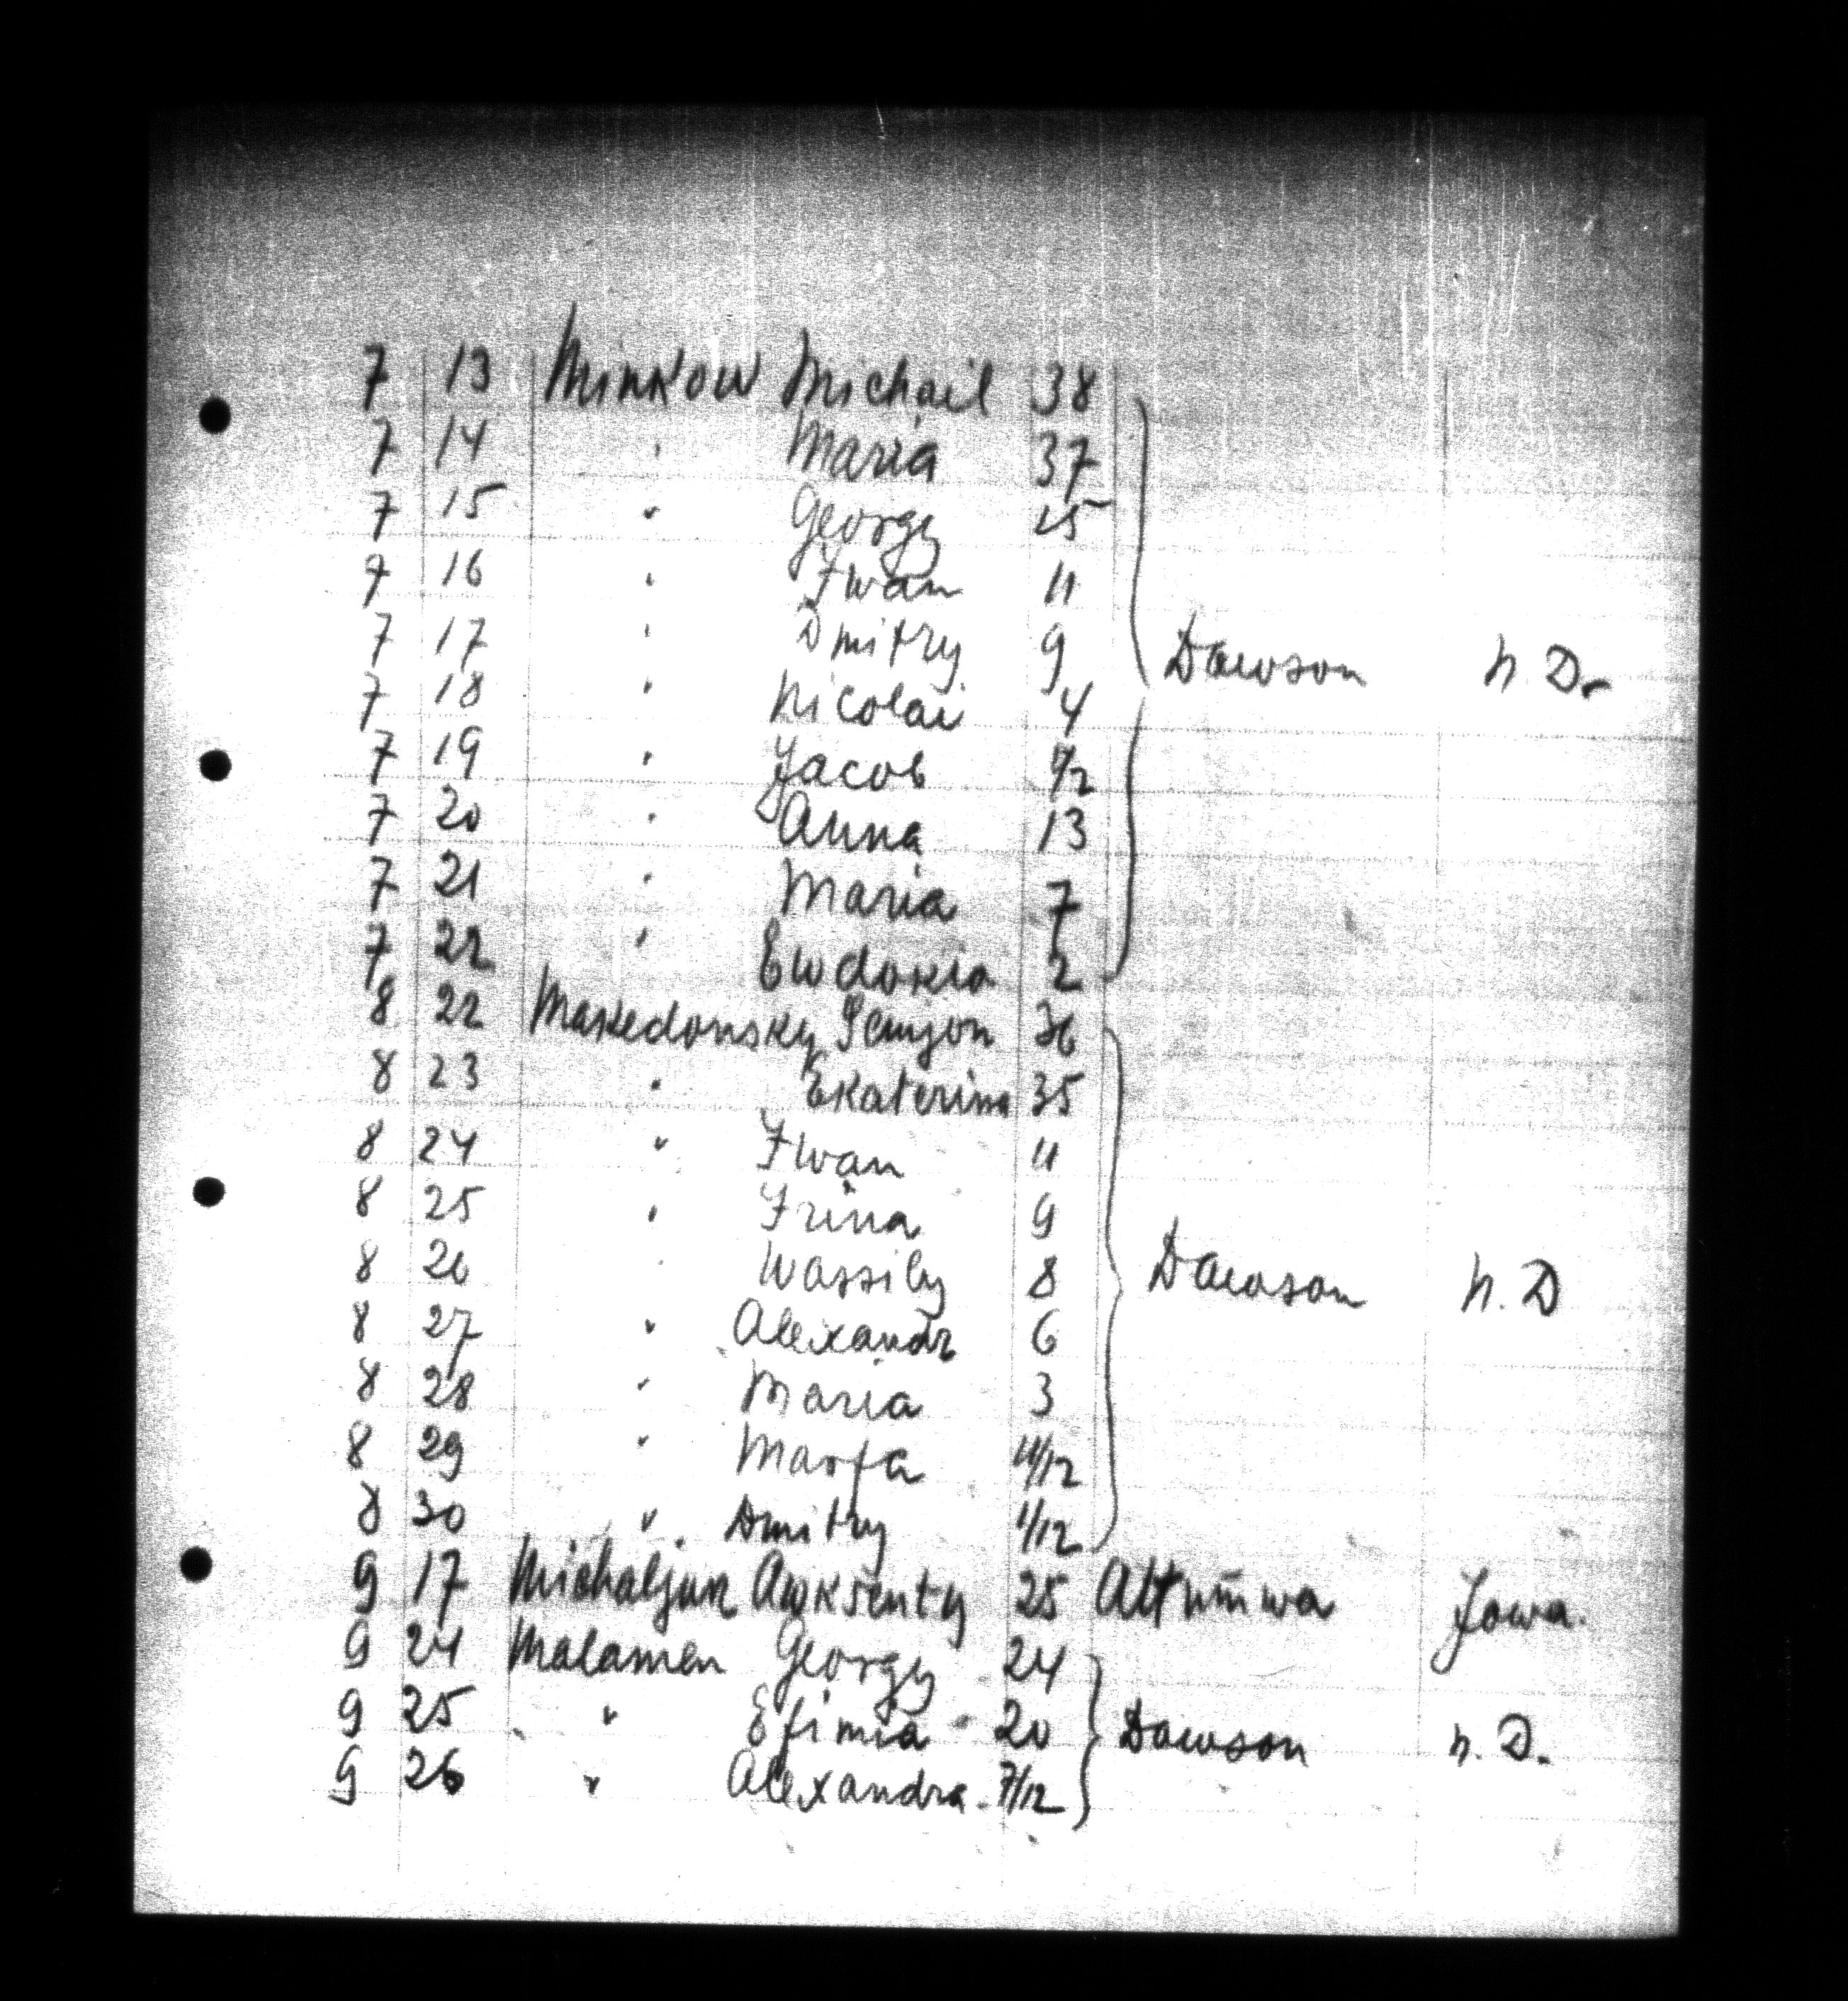 7 13 Minkow Michail 38
7 14 " Maria 37
7 15 " Georgy 15
7 16 " Iwan 11
7 17 " Dmitry 9 Dawson N. D.
7 18 " Nicolai 4
7 19 " Jacob 1/2
7 20 " Anna 13
7 21 " Maria 7
7 22 " Ewdokia 2
8 22 Makedonsky Semjon 36
8 23 " Ekaterina 35
8 24 " Iwan 11
8 25 " Irina 9
8 26 " Wassily 8 Dawson N. D
8 27 " Alexandr 6
8 28 " Maria 3
8 29 " Marfa 11/12
8 30 " Dmitry 1/12
9 17 Michaljuk Awksenty 25 Attumwa Jowa.
9 24 Malamen Georgy 24
9 25 " Efimia 20 Dawson N. D.
9 26 " Alexandra 7/12